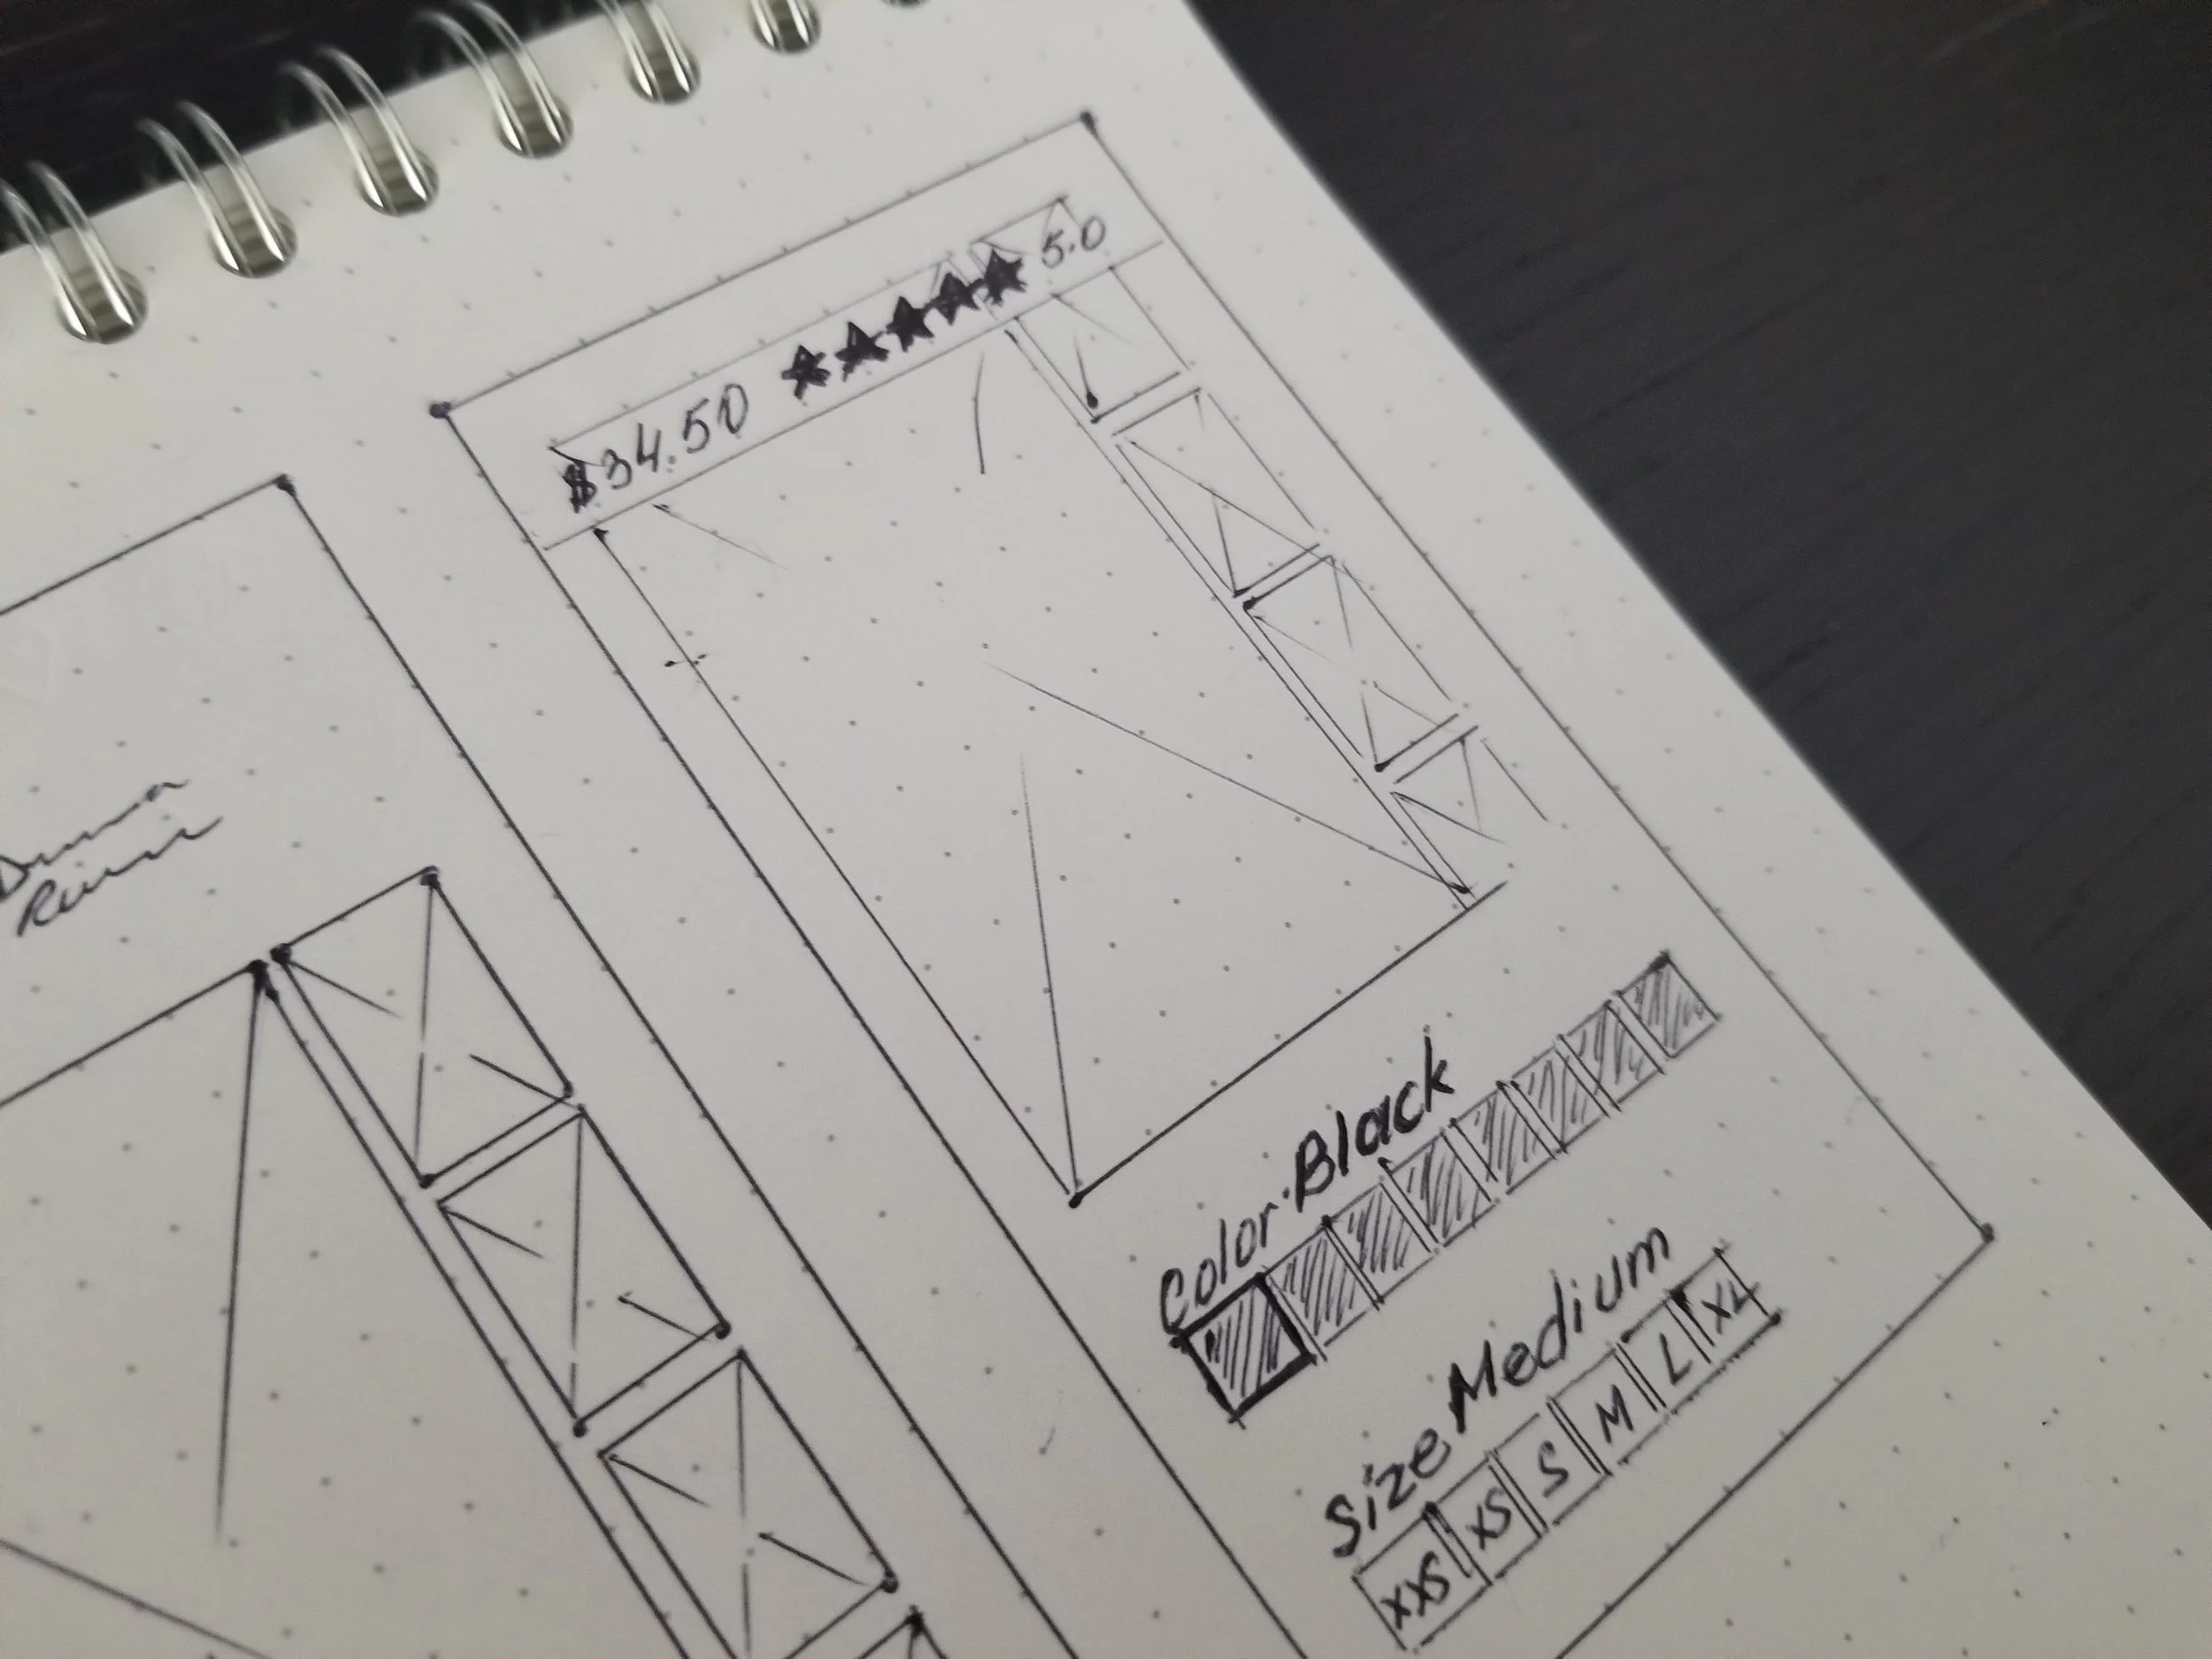 $34.50 ★★★★★ 5.0
Color Black
Size Medium
XXS XS S M L XL